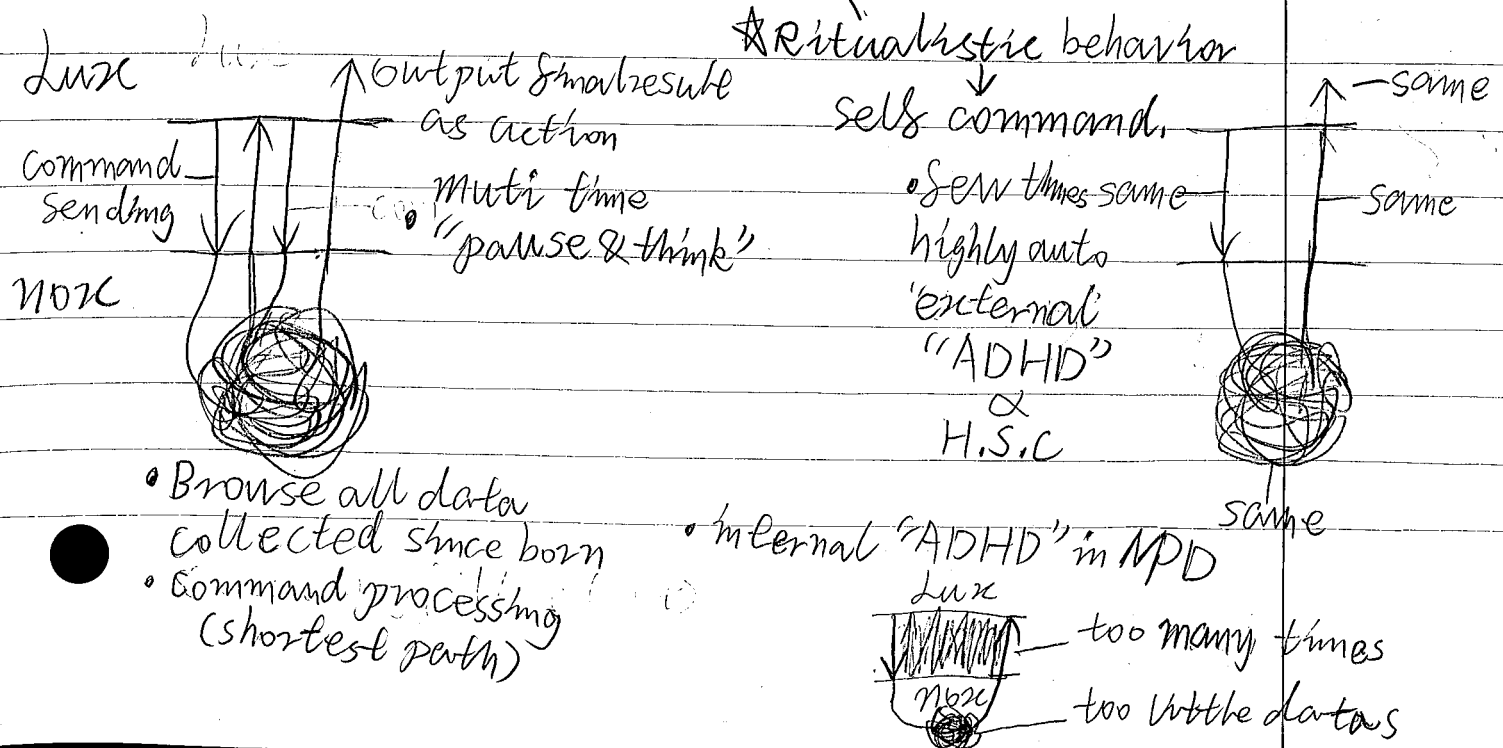 Lux
output final result
as action
command
sending
muti time
• "pause & think"
nox
• Browse all data
collected since born
• Command processing
(shortest path)
☆Ritualistic behavior
↓
self command.
• few times same
highly auto
"external
"ADHD"
∝
H.S.C
same
same
same
• internal "ADHD" in NPD
Lux
too many times
nox
too little datas